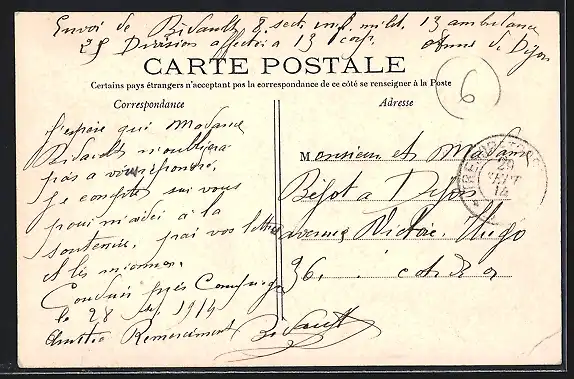 Envoi de Bidault 8 sect inf milit. 13 ambulance
25 Division affecté a 13 corp. Armé de Dijon
CARTE POSTALE
Certains pays étrangers n'acceptant pas la correspondance de ce côté se renseigner à la Poste
6
Correspondance
J'espère qui Madame
Bidault n'oubliera
pas a vous répondre.
Je compte sur vous
pour m'aider à la
soutenir, j'ai vos lettres
et les miennes.
près Compiègne
le 28 1914
Amitié Remerciment Bidault
Adresse
Monsieur et Madame
Béjot a Dijon
avenue Victor Hugo
36. cote d or
TRESOR ET POSTES
29
SEPT
14